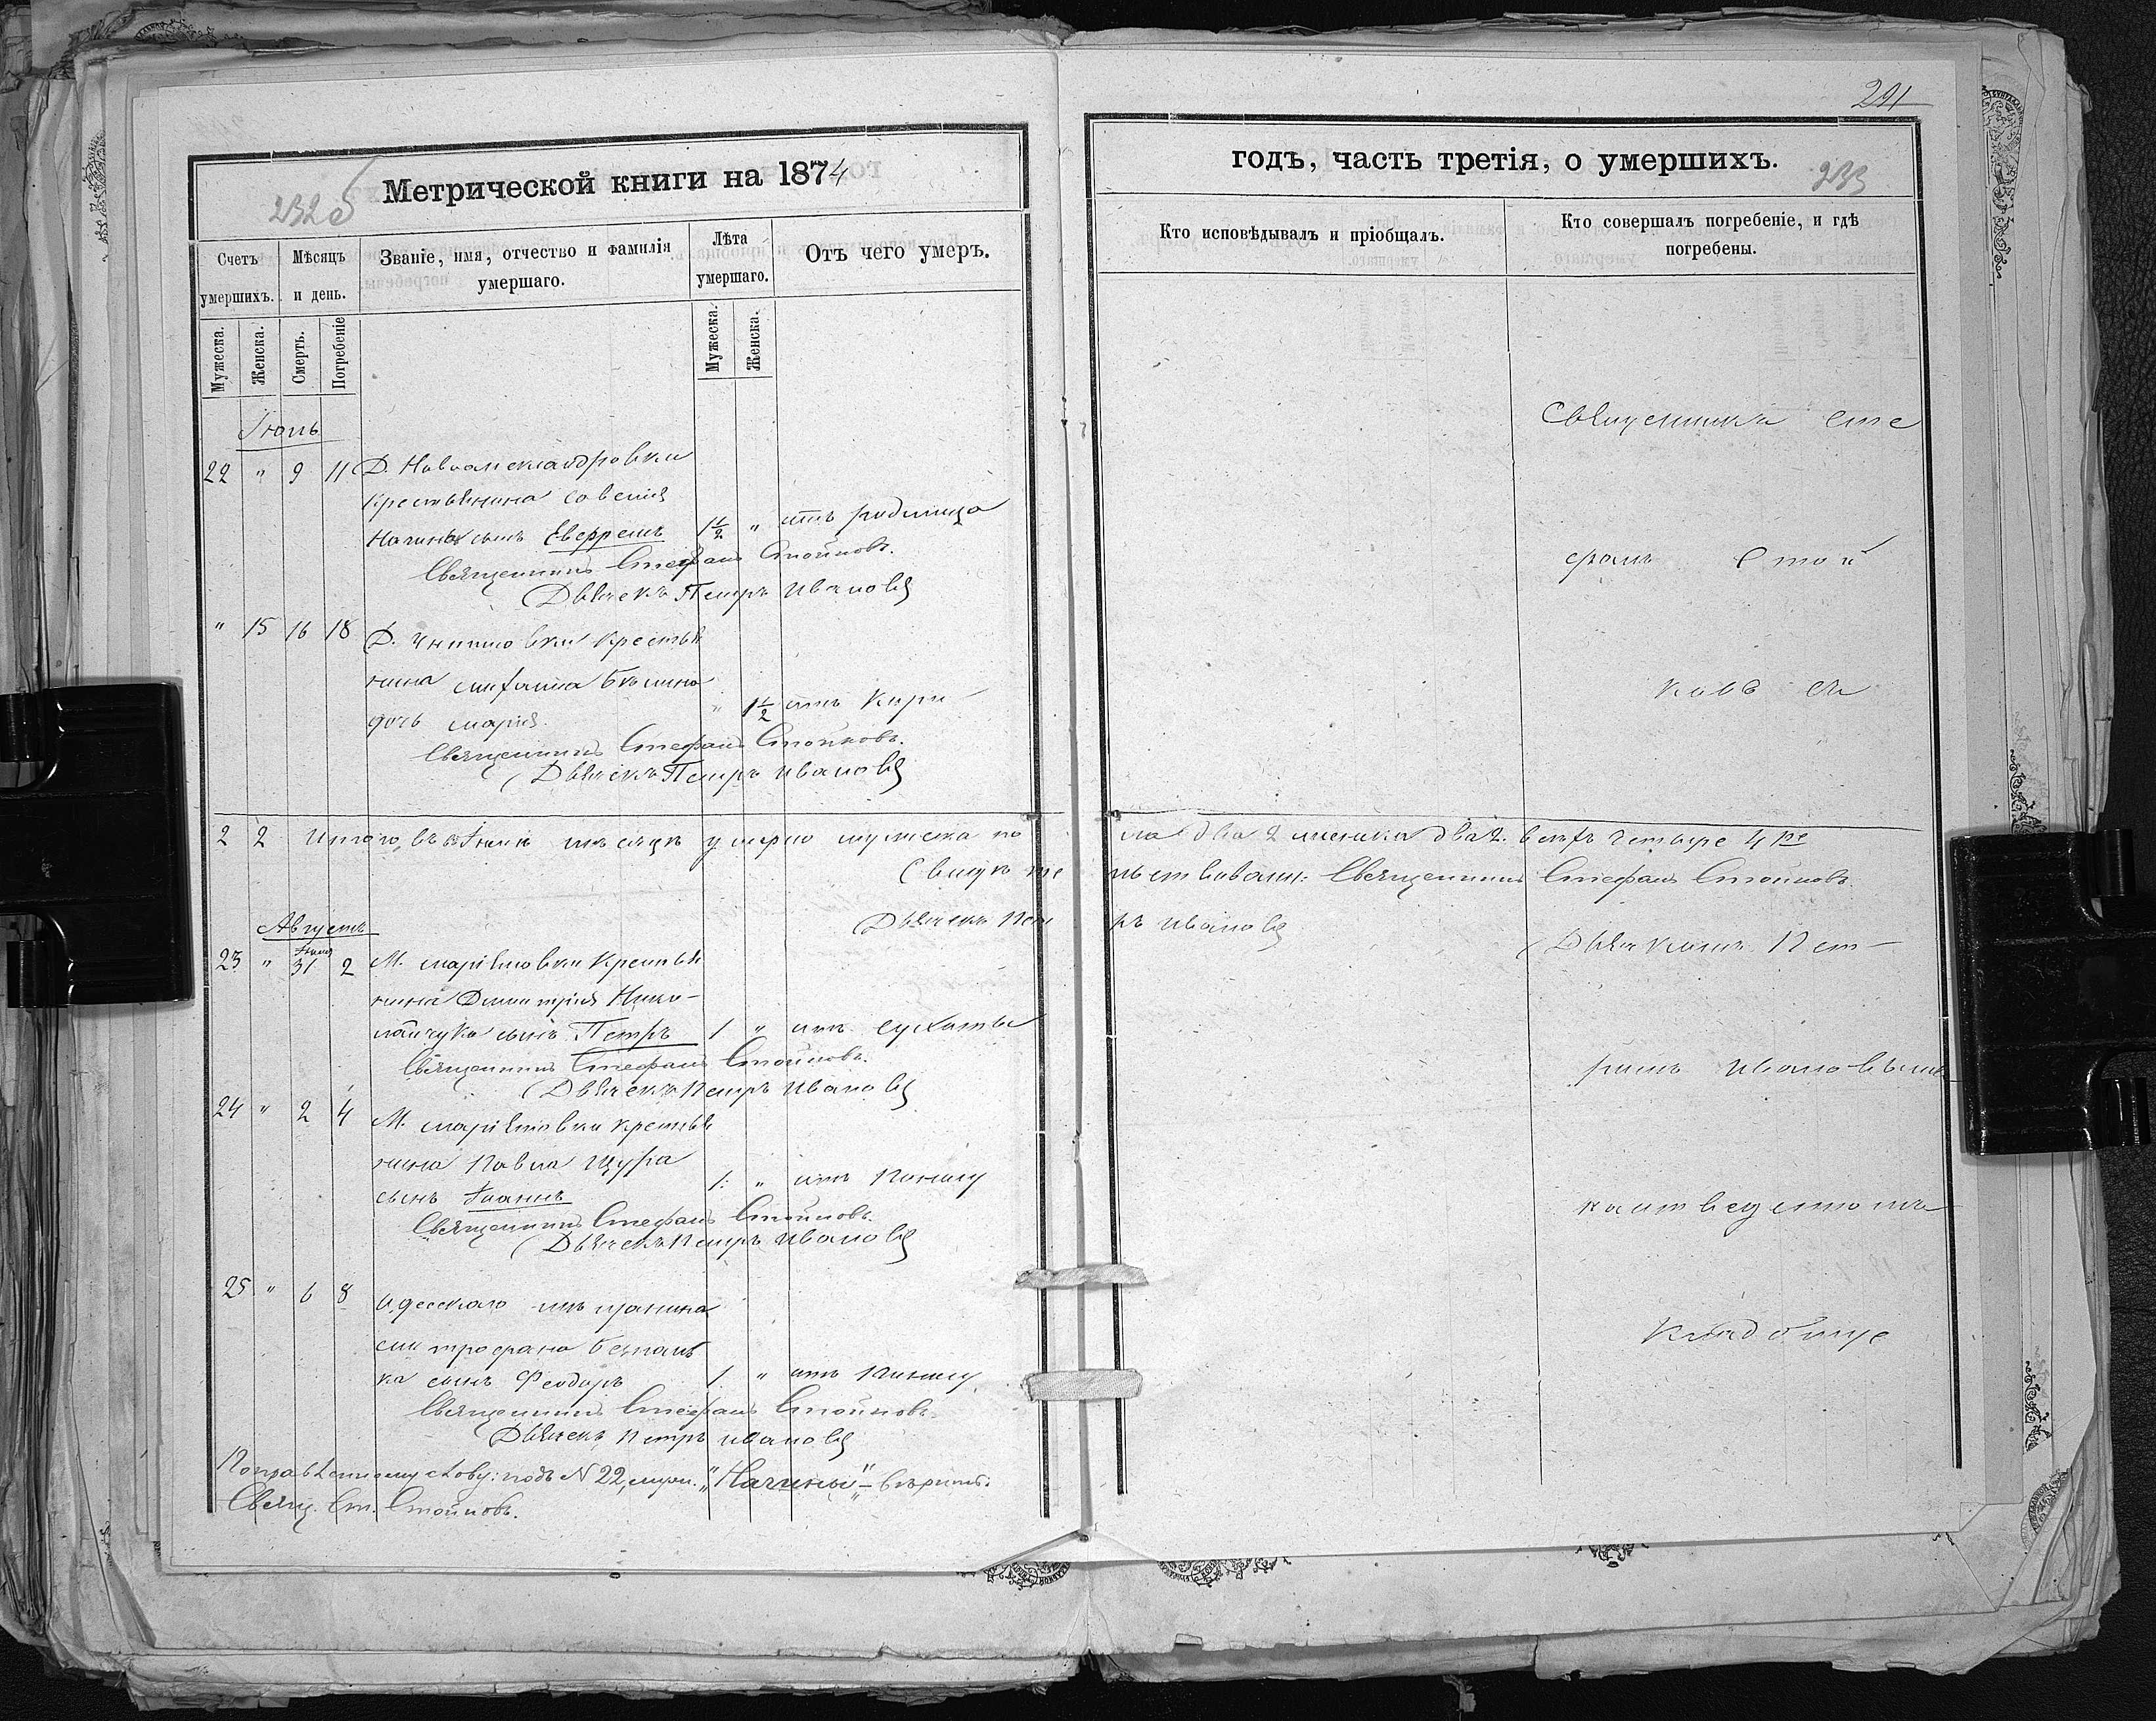 232 б
Метрической книги на 1874
Счетъ умершихъ.
Мѣсяцъ и день.
Званіе, имя, отчество и фамилія умершаго.
Лѣта умершаго.
Отъ чего умеръ.
Мужеска.
Женска.
Смерть.
Погребеніе
Мужеска.
Женска.
Іюль
22 " 9 11 Д. Новоалександровки
крестьянина Савелія
Начины сынъ 1½ " отъ родимца
Священникъ Стефанъ Стойковъ.
Дьячекъ Петръ Ивановъ
" 15 16 18 Д. крестья
нина
дочь Марія " 1½ отъ кори
Священникъ Стефанъ Стойковъ.
Дьячекъ Петръ Ивановъ
2 2 Итого въ Іюлѣ мѣсяцѣ умерло мужеска по
Свидѣте
Дьячекъ Пет
Августъ
23 " Іюля 31 2 М. Маріяновки крестья
нина Димитрія Нико-
лайчука сынъ Петръ 1 " отъ сухоты
Священникъ Стефанъ Стойковъ.
Дьячекъ Петръ Ивановъ
24 " 2 4 М. Маріяновки крестья
нина Павла Щура
сынъ Іоаннъ 1. " отъ поносу
Священникъ Стефанъ Стойковъ.
Дьячекъ Петръ Ивановъ
25 " 6 8 Одесскаго мѣщанина
Митрофана
ка сынъ Феодоръ 1. " отъ поносу
Священникъ Стефанъ Стойковъ.
Дьячекъ Петръ Ивановъ
Поправленному слову: подъ N 22, муж. "Начины" – вѣрить.
Свящ. Ст. Стойковъ.
291
годъ, часть третія, о умершихъ.
233
Кто исповѣдывалъ и пріобщалъ.
Кто совершалъ погребеніе, и гдѣ погребены.
Священника Сте
фанъ Стой
ковъ съ
ла два 2 женска два 2. всѣхъ четыре 4 ре
льствовали: Священникъ Стефанъ Стойковъ.
ръ Ивановъ
Дьячкомъ Пет-
ромъ Ивановымъ
кладбище